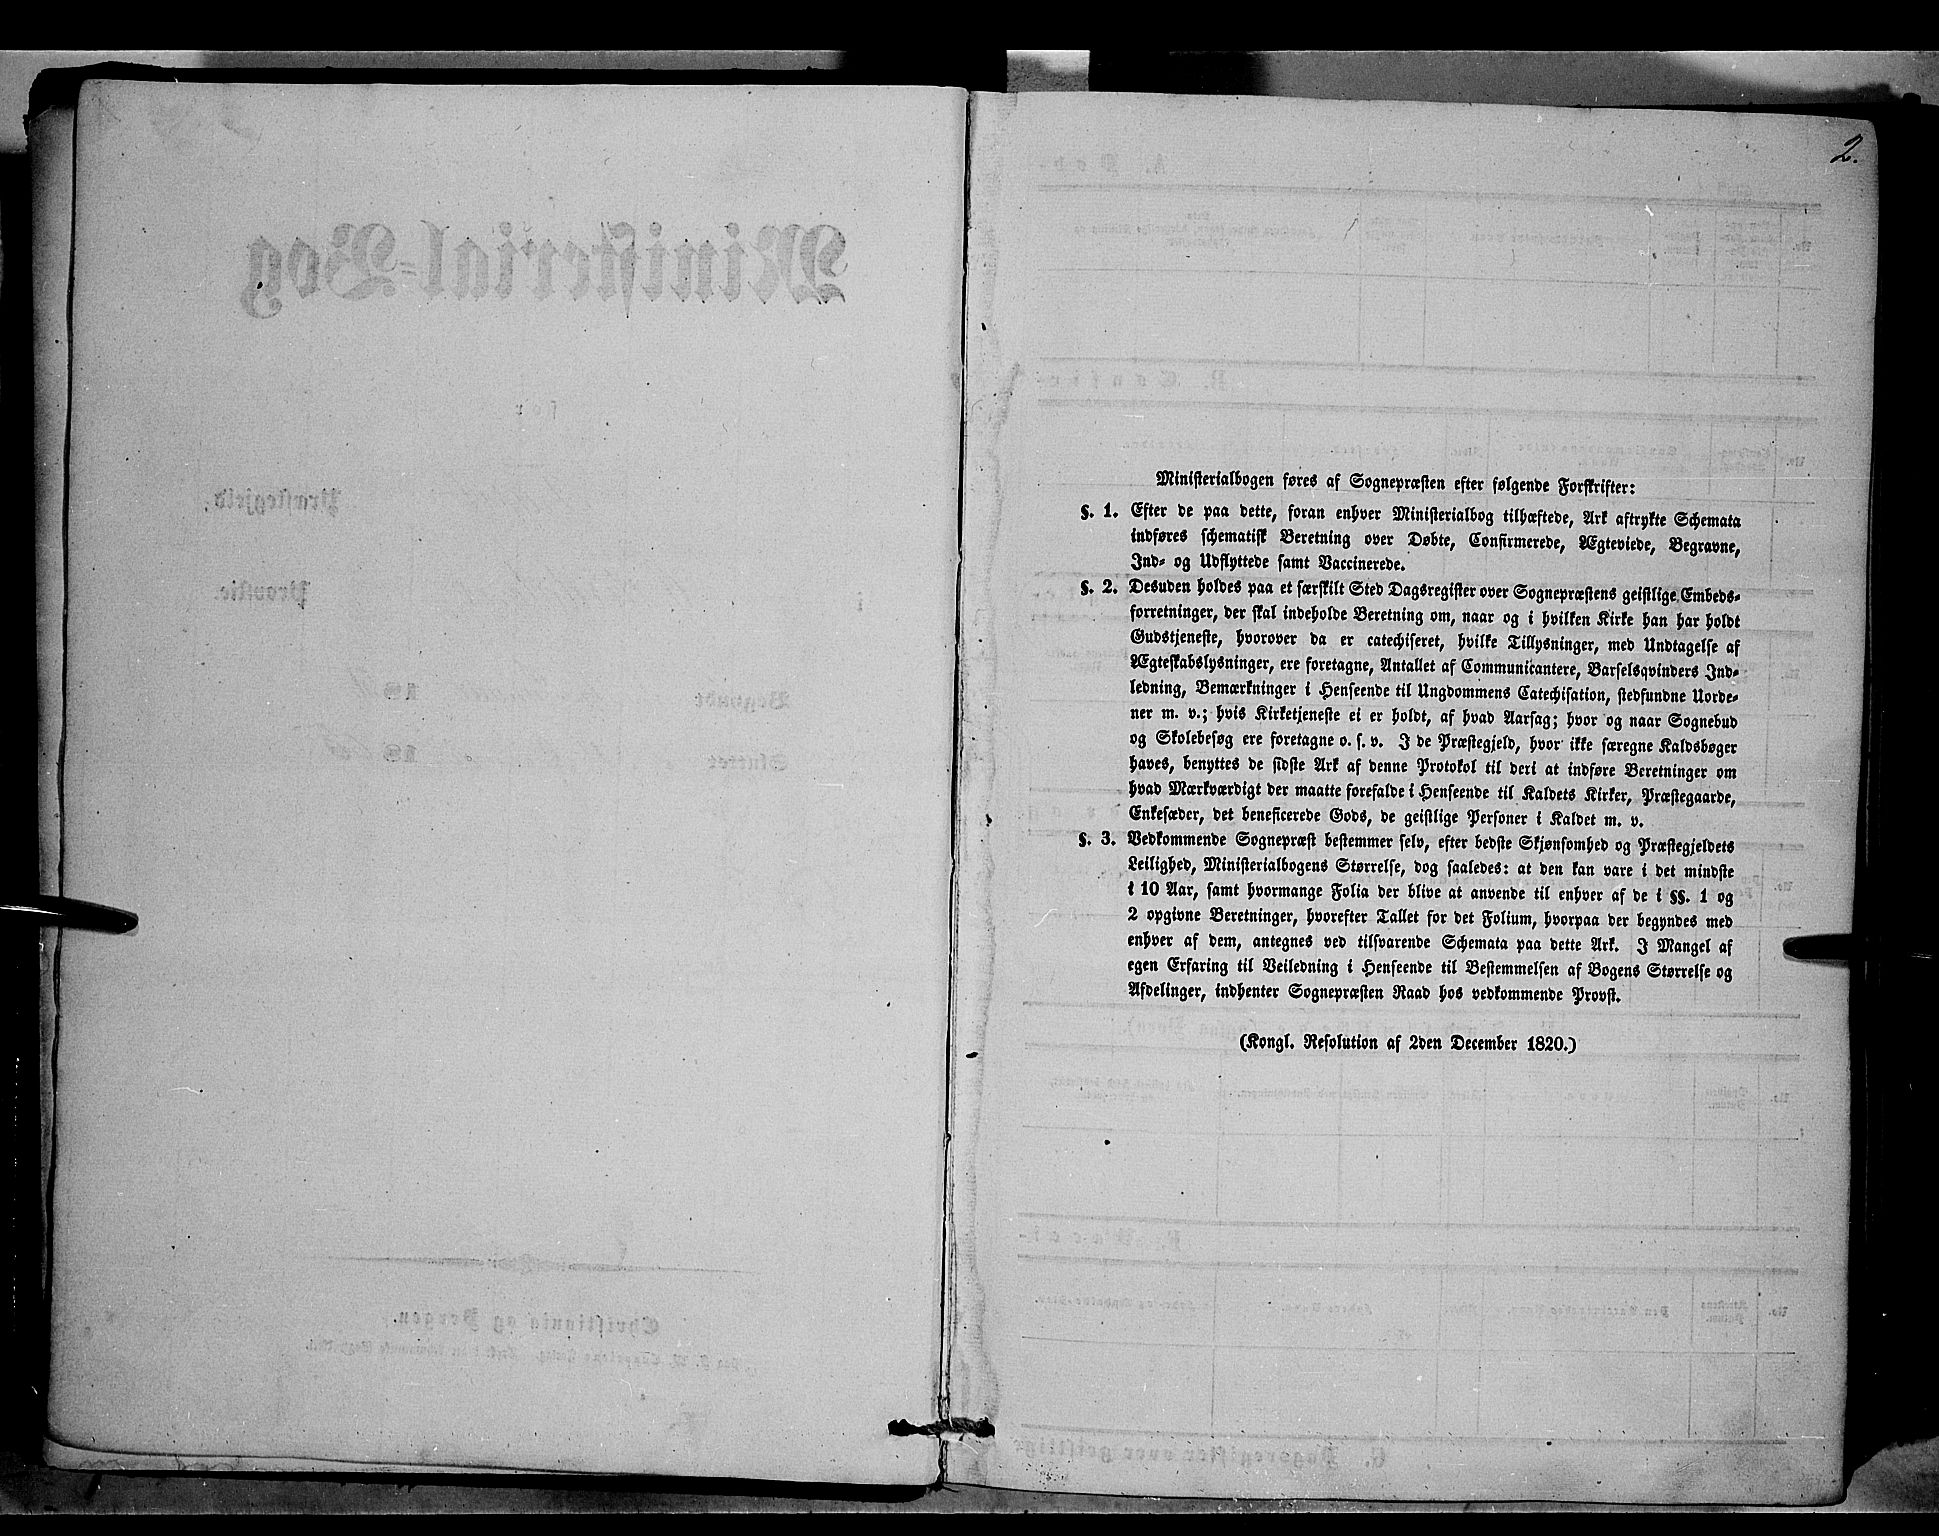 2.
Ministerialbogen føres af Sognepræsten efter følgende Forskrifter:
§. 1. Efter de paa dette, foran enhver Ministerialbog tilhæftede, Ark aftrykte Schemata
indføres schematisk Beretning over Døbte, Confirmerede, Ægteviede, Begravne,
Ind- og Udflyttede samt Vaccinerede.
§. 2. Desuden holdes paa et særskilt Sted Dagsregister over Sognepræstens geistlige Embeds-
forretninger, der skal indeholde Beretning om, naar og i hvilken Kirke han har holdt
Gudstjeneste, hvorover da er catechiseret, hvilke Tillysninger, med Undtagelse af
Ægteskabslysninger, ere foretagne, Antallet af Communicantere, Barselsqvinders Ind-
ledning, Bemærkninger i Henseende til Ungdommens Catechisation, stedfundne Uorde-
ner m. v.; hvis Kirketjeneste ei er holdt, af hvad Aarsag; hvor og naar Sognebud
og Skolebesøg ere foretagne o. s. v. I de Præstegjeld, hvor ikke særegne Kaldsbøger
haves, benyttes de sidste Ark af denne Protokol til deri at indføre Beretninger om
hvad Mærkværdigt der maatte forefalde i Henseende til Kaldets Kirker, Præstegaarde,
Enkesæder, det beneficerede Gods, de geistlige Personer i Kaldet m. v.
§. 3. Vedkommende Sognepræst bestemmer selv, efter bedste Skjønsomhed og Præstegjeldets
Leilighed, Ministerialbogens Størrelse, dog saaledes: at den kan vare i det mindste
i 10 Aar, samt hvormange Folia der blive at anvende til enhver af de i §§. 1 og
2 opgivne Beretninger, hvorefter Tallet for det Folium, hvorpaa der begyndes med
enhver af dem, antegnes ved tilsvarende Schemata paa dette Ark. I Mangel af
egen Erfaring til Veiledning i Henseende til Bestemmelsen af Bogens Størrelse og
Afdelinger, indhenter Sognepræsten Raad hos vedkommende Provst.
(Kongl. Resolution af 2den December 1820.)
Ministerial-Bog
for
Præstegjeld,
i
Provstie.
Begyndt
18
Sluttet
18
Christiania og Bergen.